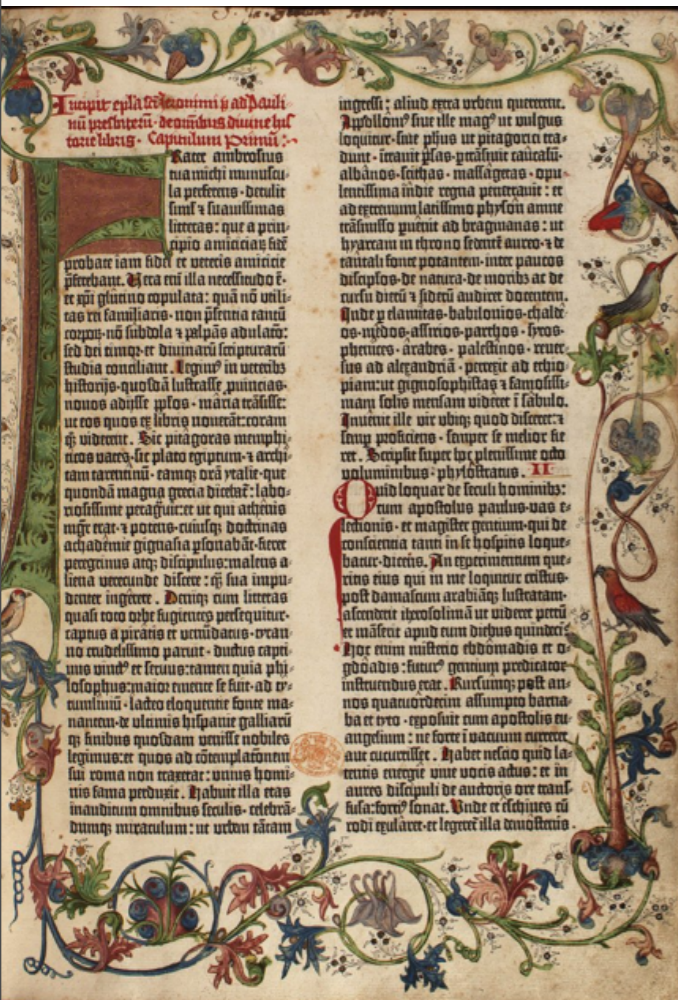 Incipit epl̃a sc̃i Jeronimi p̃ ad Pauli-
nũ presbiterũ · de om̃ibus diuine his-
torie libris · Capitulum Primũ:·
FRater ambrosius
tua michi munuscu-
la perferens · detulit
siml̃ ⁊ suauissimas
litteras: que a prin-
cipio amiciciaꝝ fidẽ
probate iam fidei et veteris amicicie
p̃ferebant. Vera em̃ illa necessitudo ẽ·
et xp̃i glutino copulata: quam nõ vtili-
tas rei familiaris · non p̃sentia tantũ
corporũ · nõ subdola ⁊ palpãs adulatõ:
sed dei timor · et diuinarũ scripturarũ
studia conciliant. Legimꝰ in veteribꝫ
historijs · quosdã lustrasse ꝓuincias·
nouos adijsse ppl̃os · maria trãsisse:
ut eos quos ex libris nouerãt: coram
qꝫ viderent. Sic pitagoras memphi-
ticos vates · sic plato egiptum · ⁊ archi-
tam tarentinũ · eamqꝫ orã ytalie · que
quondã magna grecia dicebat̃: labo-
riosissime peragrãuit: et ut qui athenis
mgr̃ erat · ⁊ potens · cuiusqꝫ doctrinas
achademie gignasia ꝑsonabãt · fieret
peregrinus atqꝫ discipulus: malens a-
liena verecunde discere: qꝫ̃ sua impu-
denter ingerere. Deniqꝫ cum litteras
quasi toto orbe fugientes persequitur·
captus a piratis et venũdatus · tyran-
no crudelissimo paruit · ductus capti-
uus vinctꝰ et seruus: tamen quia phi-
losophus: maior emente se fuit · ad ty-
tumliuiũ · lacteo eloquentie fonte ma-
nantem · de vltimis hispanie galliarũ
qꝫ finibus quosdam venisse nobiles
legimus: et quos ad cõtemplationem
sui roma non traxerat: vnius homi-
nis fama perduxit. Habuit illa etas
inauditum omnibus seculis · celebrã-
dumqꝫ miraculum: ut vrbem tãtam
ingressi: aliud extra vrbem quererent.
Appollonꝰ siue ille magꝰ ut vulgus
loquitur · siue ph̃us ut pitagorici tra-
dunt · intrauit ꝑsas · ꝑtrãsiuit caucasũ·
albãnos · scithas · massagetas · opu-
lentissima indie regna penetrauit: et
ad extremum latissimo physon amne
trãsmisso puenit ad bragmanas: ut
hyarcam in throno sedentẽ aureo · ⁊ de
tantali fonte potantem · inter paucos
discipl̃os · de natura · de moribꝫ ac de
cursu dierũ ⁊ siderũ audiret docentem.
Inde p elamitas · babilonios · chalde-
os · medos · assirios · parthos · syros·
phenices · arabes · palestinos · reuer-
sus ad alexandriã · perrexit ad ethio-
piam: ut gignosophistas ⁊ famosissi-
mam solis mensam videret ĩ sabulo.
Inuenit ille vir vbiqꝫ quod disceret: ⁊
semꝑ proficiens · semper se melior fie-
ret. Scripsit super hoc plenissime octo
voluminibus · phylostratus. II
Quid loquar de seculi hominibꝫ:
cum apostolus paulus · vas e-
lectionis · et magister gentium · qui de
conscientia tanti in se hospitis loque-
batur · dicens. An experimentum que-
ritis eius qui in me loquitur cristus·
post damascum arabiãqꝫ lustratam·
ascenderit iherosolimã ut videret petrũ
et mãserit apud eum diebus quindeci.
Hoc enim misterio ebdomadis et o-
gdoadis: futurꝰ gentium predicator
instruendus erat. Rursumqꝫ post an-
nos quatuordecim assumpto barna-
ba et tyto · exposuit cum apostolis eu-
angelium: ne forte ĩ vacuum curreret
aut cucurrisset. Habet nescio quid la-
tentis energie viue vocis actus: et in
aures discipuli de auctoris ore trans-
fusa: fortiꝰ sonat. Vnde et eschines cũ
rodi exularet · et legeret̃ illa demostenis·